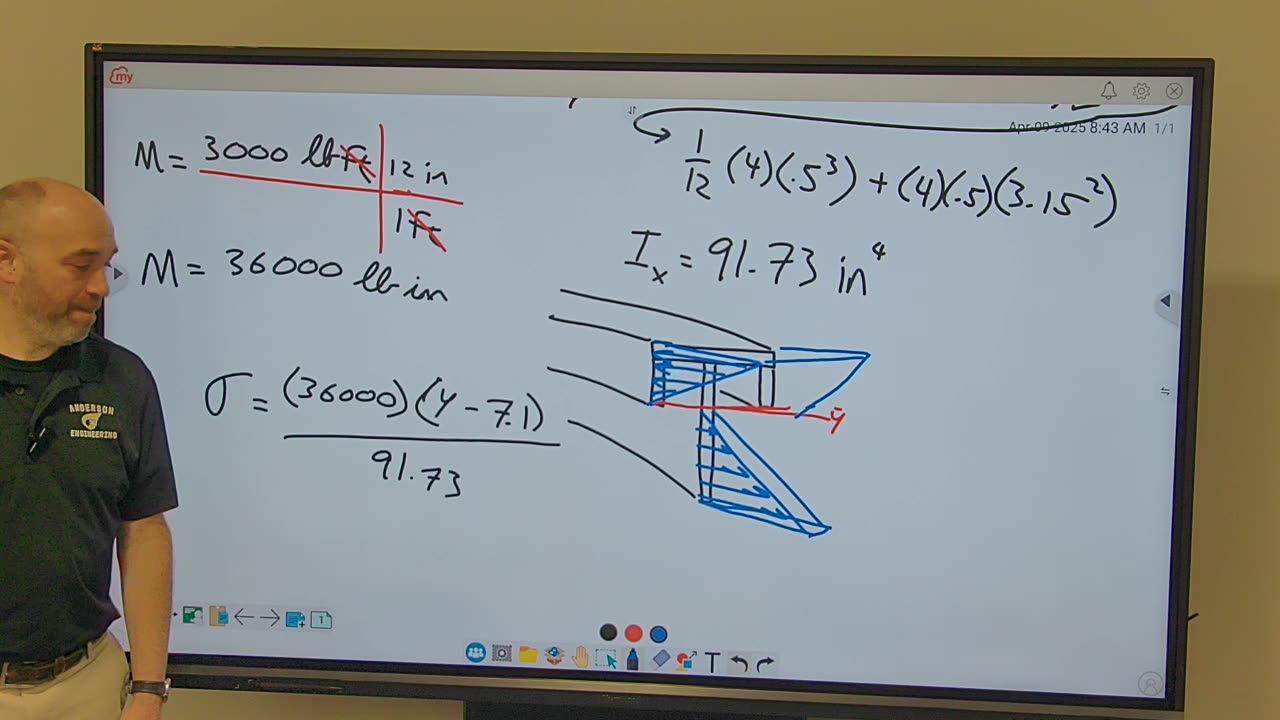 my
Apr 09 2025 8:43 AM 1/1
M = 3000 lb ft | 12 in
1 ft
M = 36000 lb in
1/12 (4)(.5³) + (4)(.5)(3.15²)
Iₓ = 91.73 in⁴
σ = (36000)(y - 7.1)
91.73
ȳ
ANDERSON
ENGINEERING
1
T